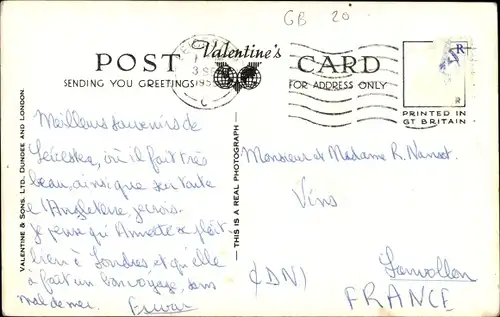 GB 20
POST Valentine's CARD
SENDING YOU GREETINGS FOR ADDRESS ONLY
R
R
PRINTED IN
GT BRITAIN
VALENTINE & SONS, LTD., DUNDEE AND LONDON.
THIS IS A REAL PHOTOGRAPH
Meilleurs souvenirs de
Leicester, où il fait très
beau, ainsi que sur toute
l'Angleterre, je crois.
Je pense qu'Annette se plaît
bien à Londres et qu'elle
a fait un bon voyage, sans
mal de mer.
Monsieur et Madame R.
Vins
(CDN)
Lanvollon
FRANCE